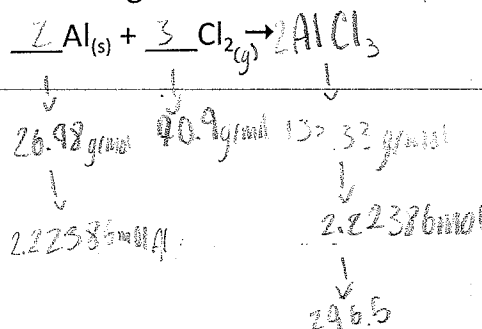 2 Al(s) + 3 Cl2(g) → 2AlCl3
26.98 g/mol 70.9 g/mol 133.33 g/mol
2.22386 mol Al 2.22386 mol
296.5